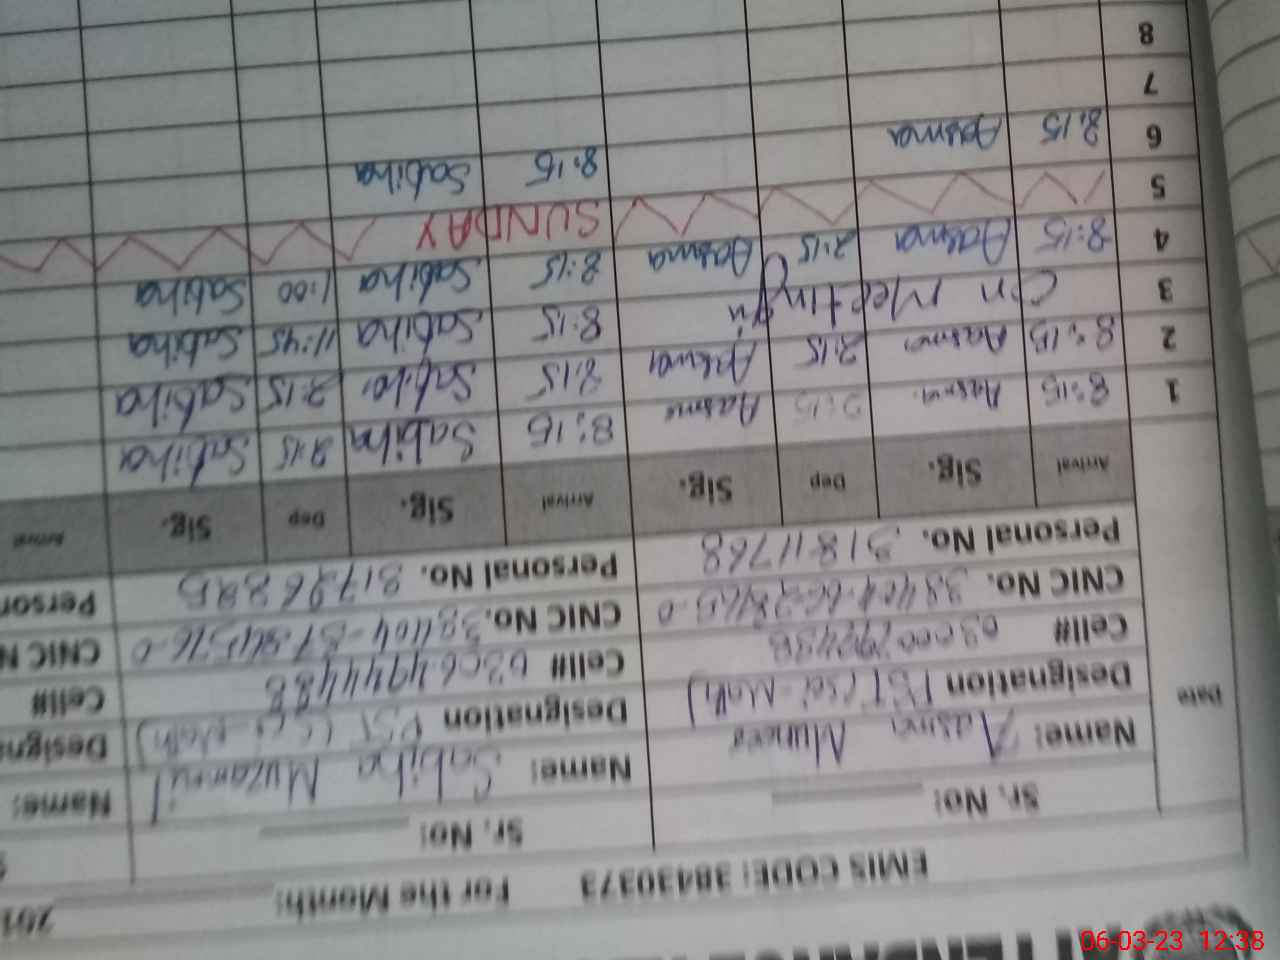 EMIS CODE: 38430373 For the Month: 201
Sr. No: Sr. No:
Name: Aasma Muneer Name: Sabiha Muzammil Name:
Designation PST (Sci-Math) Designation PST (Sci-Math)
Cell# Cell# 03064944488 Cell#
CNIC No. CNIC No. CNIC N
Personal No. 31811768 Personal No. Person
Date Arrival Sig. Dep Sig. Arrival Sig. Dep Sig. Arrival
1 8:15 Aasma 2:15 Aasma 8:15 Sabiha 2:15 Sabiha
2 8:15 Aasma 2:15 Aasma 8:15 Sabiha 2:15 Sabiha
3 On Meeting 8:15 Sabiha 11:45 Sabiha
4 8:15 Aasma 2:15 Aasma 8:15 Sabiha 1:00 Sabiha
5 SUNDAY
6 8:15 Aasma 8:15 Sabiha
7
8
06-03-23 12:38